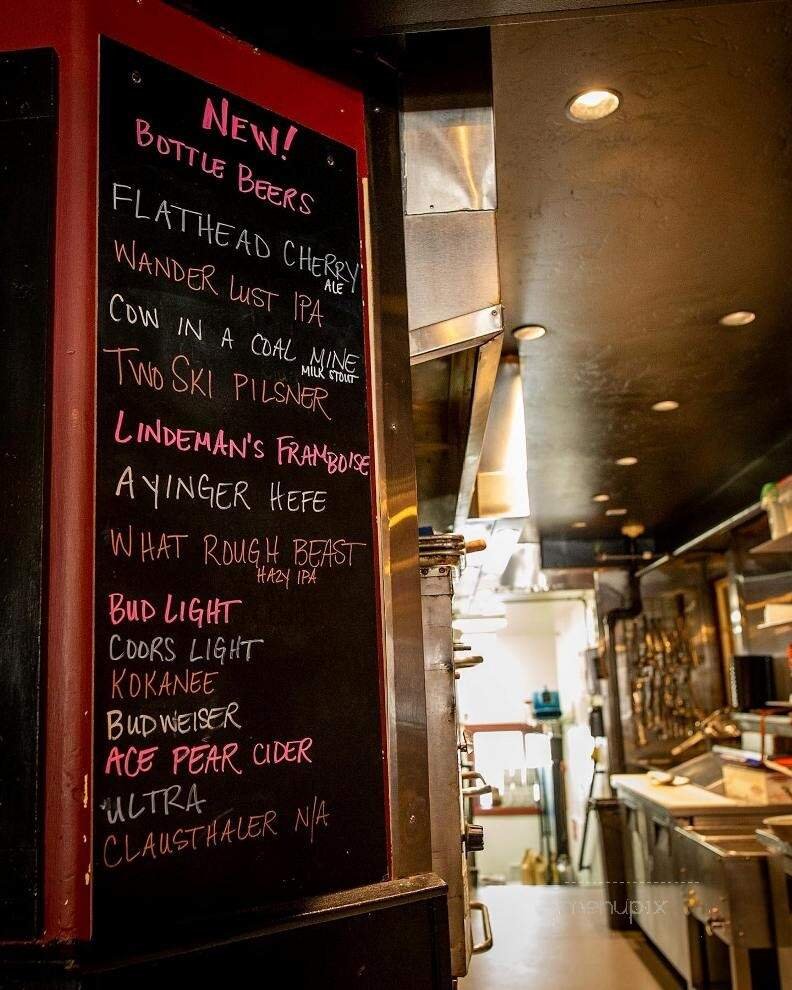 NEW!
BOTTLE BEERS
FLATHEAD CHERRY
ALE
WANDER LUST IPA
COW IN A COAL MINE
MILK STOUT
TWO SKI PILSNER
LINDEMAN'S FRAMBOISE
AYINGER HEFE
WHAT ROUGH BEAST
HAZY IPA
BUD LIGHT
COORS LIGHT
KOKANEE
BUDWEISER
ACE PEAR CIDER
ULTRA
CLAUSTHALER N/A
menupix